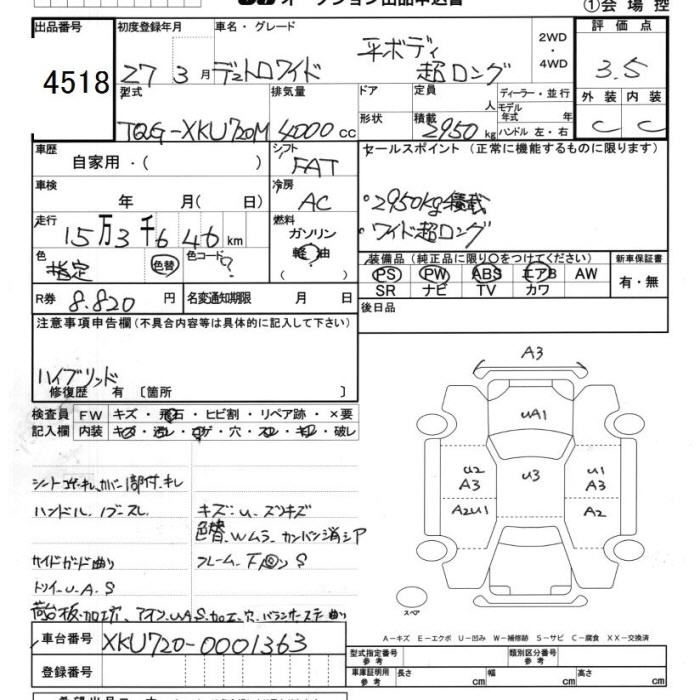 オークション出品申込書
①会場控
出品番号
4518
初度登録年月
27 3月
車名・グレード
デュトロワイド
平ボディ
超ロング
2WD
・
4WD
評価点
3.5
型式
TQG-XKU720M
排気量
4000 cc
ドア
形状
定員
人
積載
2950 kg
ディーラー・並行
モデル
年式 年
ハンドル 左・右
外装 内装
C C
車歴
自家用・( )
シフト
FAT
セールスポイント(正常に機能するものに限ります)
・2950kg積載
・ワイド超ロング
車検
年 月( 日)
冷房
AC
走行
15万3千646km
燃料
ガソリン
軽油
( )
色
指定
色替
色コード
?
装備品(純正品に限り○をつけてください)
PS PW ABS エアB AW
SR ナビ TV カワ
新車保証書
有・無
R券 8.820円
名変通知期限 月 日
後日品
注意事項申告欄(不具合内容等は具体的に記入して下さい)
ハイブリッド
修復歴 有 〔箇所 〕
検査員
記入欄
FW キズ・飛石・ヒビ割・リペア跡・×要
内装 キズ・汚レ・コゲ・穴・スレ・キレ・破レ
ハンドル
キズ:U.
色替 Wムラ.カンバン消シア
サイドガード曲り
フレーム.
U.A.S
荷台板.加工穴.
A3
UA1
U2
A3
U3
U1
A3
A2U1
A2
スペア
A-キズ E-エクボ U-凹み W-補修跡 S-サビ C-腐食 XX-交換済
車台番号 XKU720-0001363
登録番号
型式指定番号
参考
類別区分番号
参考
車庫証明用
参考
長さ cm
幅 cm
高さ cm